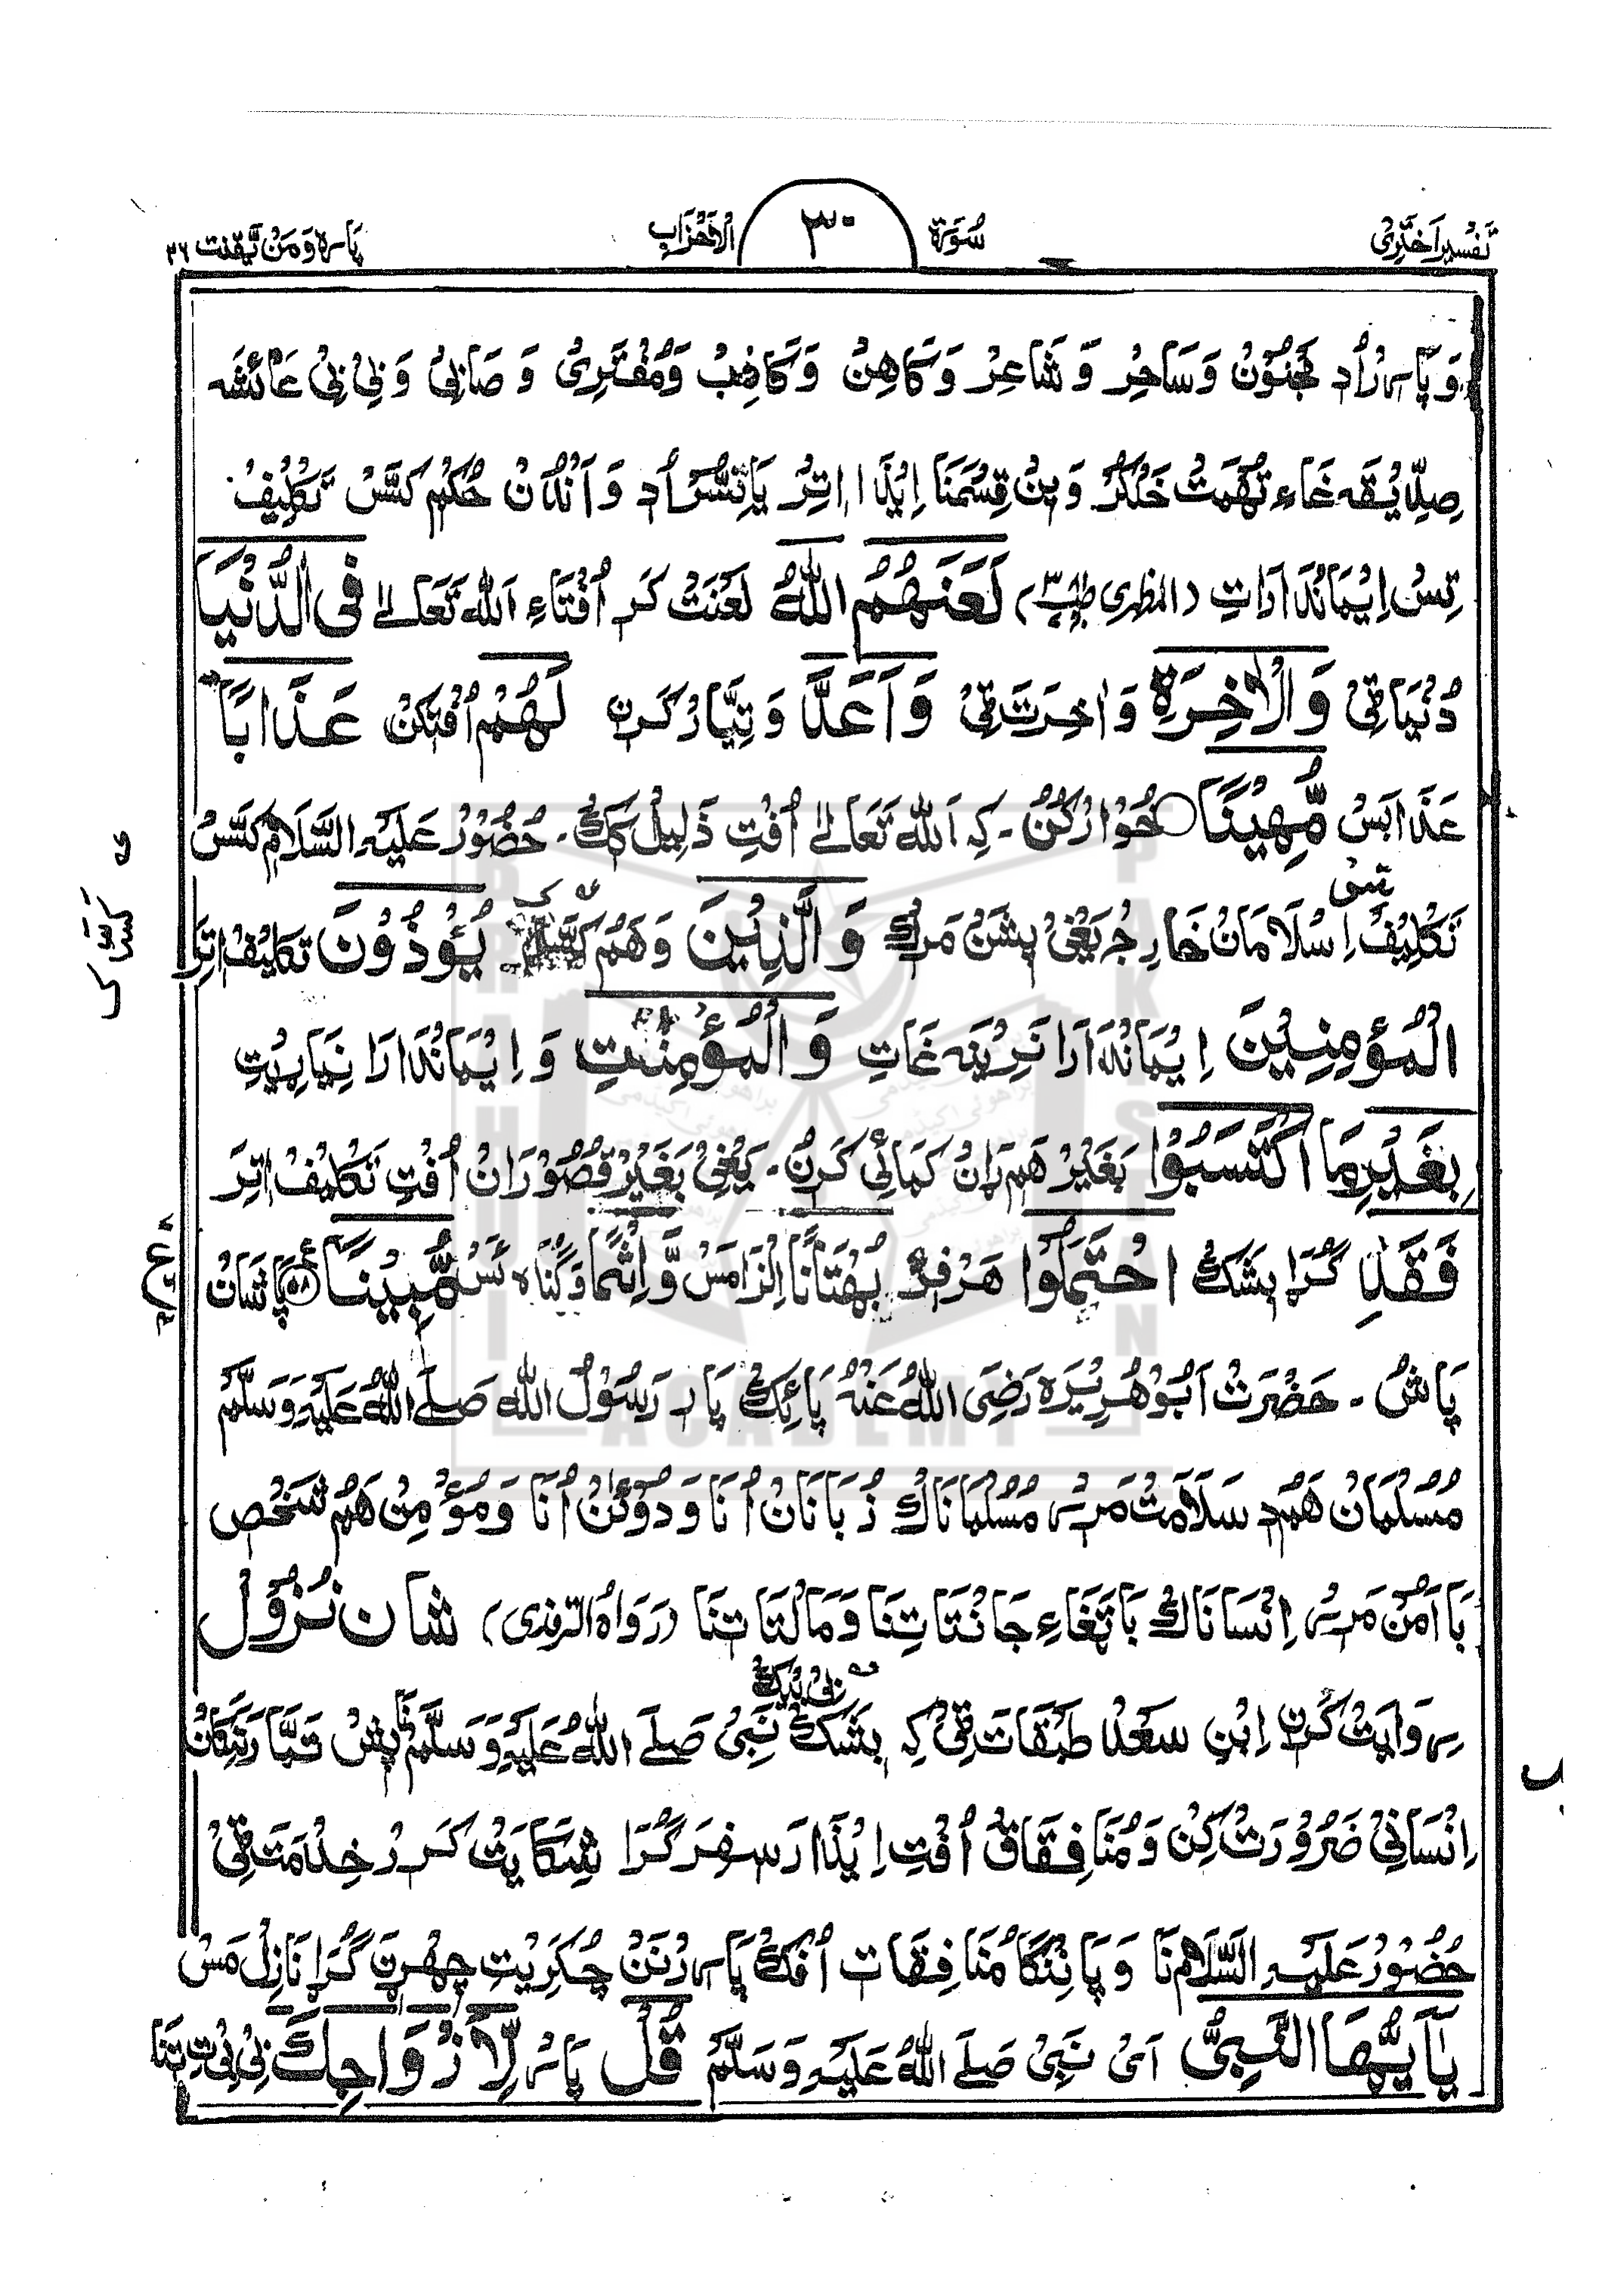 تَفْسِیر اَخْتَرِیْ سُوَرۃ ٣٠ الْاَحْزَابِ پارہ وَمَنْ یَّقْنُت ٢٢
وَپَارہْرْاُد مَجْنُوْن وَسَاحِرْ وَشَاعِرْ وَکَاهِنْ وَکَاذِبْ وَمُفْتَرِیْ وَ صَابِیْ وَ بِیْ بِیْ عَائشَہ
صِدِّیْقَہ غَاءِ تُهْمَتْ خَلْکُرْ وَ ہِنْ قِسْمَنَا اِیْذَا اِتِرْ یَا تِسُّرْاُد وَ اَنْدُنْ حُکْم کَسَّسْ تَکْلِیْفْ
تِسْ اِیْمَانْدَارَاتِ (المظہری) لَعَنَهُمُ اللّٰهُ لَعْنَتْ کَرِ اُفْتَاءِ اَللّٰه تَعَالٰے فِی الدُّنْیَا
دُنْیَاقِیْ وَالْاٰخِرَۃِ وَاٰخِرَتَ قِیْ وَاَعَدَّ وَ تِیَّارْ کَرِن لَهُمْ اُفْتِکِنْ عَذَابًا
عَذَابَسْ مُّهِیْنًا خُوَارْکُنْ - کِہ اَللّٰه تَعَالٰے اُفْتِ ذَلِیْل کَکْ - حُضُوْر عَلَیْہِ السَّلَام کَسَّسْ
تَکْلِیْفْ تِسْ اِسْلَامَانْ خَارِجْ یَعْنِیْ پِشَنْ مَرِکْ وَالَّذِیْنَ وَهَمْ کَسَّاک یُؤْذُوْنَ تَکلِیْفْ اِتِرَ
الْمُؤْمِنِیْنَ اِیْمَانْدَارَا نَرِیْنَہ غَاتِ وَالْمُؤْمِنٰتِ وَ اِیْمَانْدَارَا نِیَابِیْتِ
بِغَیْرِ مَا اکْتَسَبُوْا بَغَیْرْ هَمْرَانْ کَمَائِی کَرِنْ - یَعْنِیْ بَغَیْرْ قُصُوْرَانْ اُفْتِ تَکْلِیْفْ اِتِرَ
فَقَدِ گُرَا بِشَکْ احْتَمَلُوْا هَرْفِرْ بُهْتَانًا اِلْزَامَسْ وَّاِثْمًا وَ گُنَاہ ئَسْ مُّبِیْنًا ٥٨ پَاشَانْ
پَاشْ - حَضْرَتْ اَبُوْهُرِیْرَہ رَضِیَ اللّٰهُ عَنْہُ پَائِکْ پَارِ رَسُوْلُ اللّٰه صَلَے اللّٰهُ عَلَیْہِ وَسَلَّمْ
مُسُلْمَانْ هَمْدِ سَلَامَتْ مَرِیْر مُسُلْمَانَاکْ زُبَانَانْ اُنَا وَ دُوْتَنْ اُنَا وَمُؤْمِنْ هَمْ شَخْص
بَا اَمْنْ مَرِیْر اِنْسَانَاکْ بَاتِغَاءِ جَانْتَا تِنَا وَمَالْتَا تِنَا (رَوَاہُ الترمذی) شَان نُزُوْل
رِوَایَتْ کَرِن اِبْنِ سَعْدْ طَبَقَاتَ قِیْ کِہ بِشَکْ بِیْ بِیْکْ نَبِیْ صَلَے اللّٰهُ عَلَیْہِ وَسَلَّمْ نَا پِشْ تَمَّارَ نَنْکَانْ
اِنْسَانِیْ ضَرُوْرَتْ کِنْ وَمُنَافِقَاقْ اُفْتِ اِیْذَا رَسِفِرَ گُرَا شِکَایَتْ کَرِرْ خِدْمَتَ قِیْ
حُضُوْر عَلَیْہِ السَّلَام نَا وَ پَانِنْگَا مُنَافِقَات اُفْکْ پَارہْرْنَنْ چُکَرِیْتِ چِهْرِن گُرَا نَازِلْ مَسْ
یٰاَیُّهَا النَّبِیُّ اَیْ نَبِیْ صَلَے اللّٰهُ عَلَیْہِ وَسَلَّمْ قُلْ پَارْ لِّاَزْوَاجِكَ بِیْ بِیْتِ تِنَا
BRAHUI ACADEMY PAKISTAN